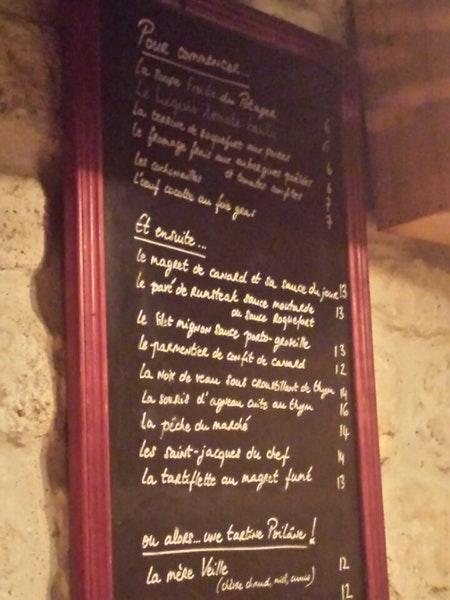 Pour commencer...
la soupe Froide du Potager 6
Le tomate 6
la terrine de Roquefort aux poires 6
le fromage frais aux aubergines grillées
et tomates confites 6
les cochonnailles 7
l'oeuf cocotte au foie gras 7
Et ensuite...
le magret de canard et sa sauce du jour 13
le pavé de Rumsteak sauce moutarde 13
ou sauce Roquefort
le filet mignon sauce porto-groseille 13
le parmentier de confit de canard 12
la noix de veau sous croustillant de thym 14
la souris d'agneau cuite au thym 16
la pêche du marché 14
les saint-jacques du chef 14
la tartiflette au magret fumé 13
ou alors... une tartine Poilâne!
la mère Veille 12
(chèvre chaud, miel, cumin)
12